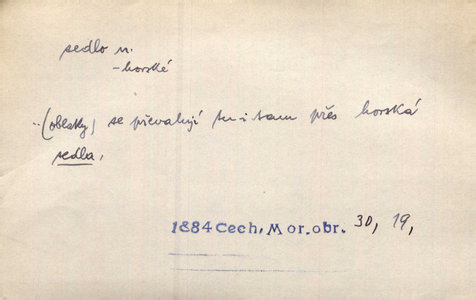 sedlo n.
-horské
..(oblaky) se převalují tu-i tam přes horská
sedla,
1884 Cech, Mor. obr. 30, 19,